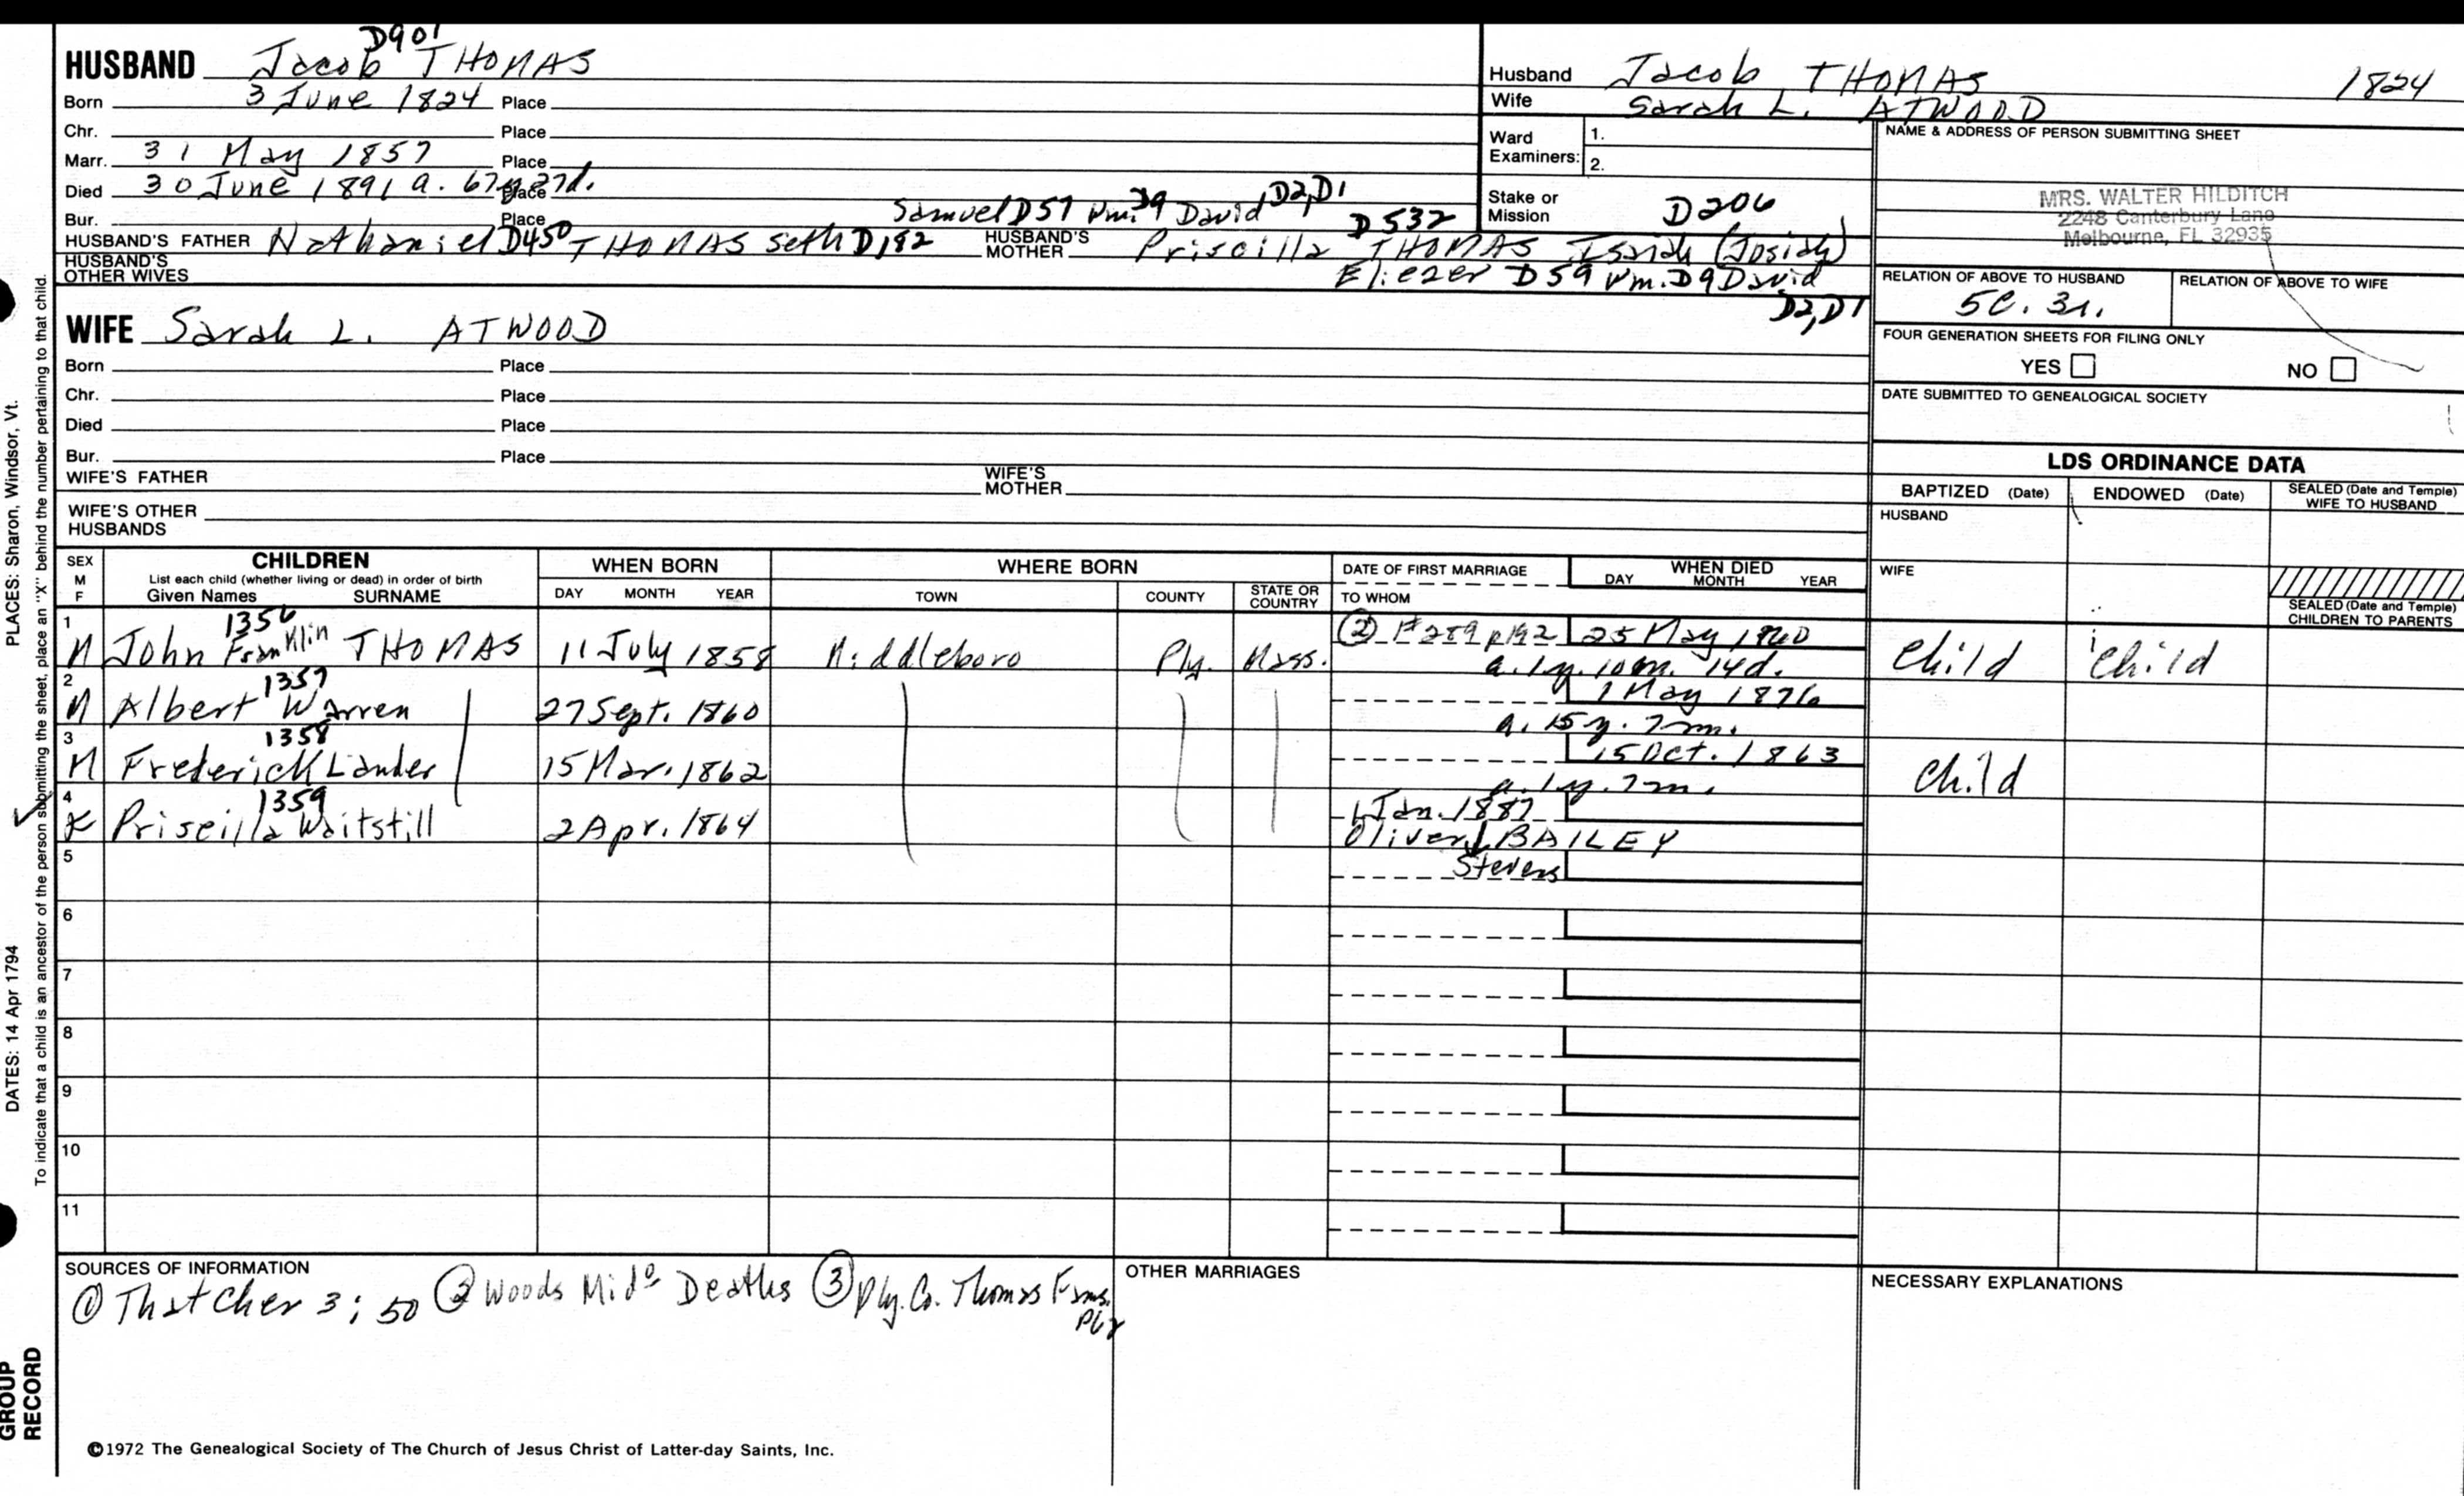 D901
HUSBAND Jacob THOMAS
Born 3 June 1824 Place
Chr. Place
Marr. 31 May 1857 Place
Died 30 June 1891 a. 67y. 27d. Place
Bur. Place
Samuel D57 Wm. D9 David D2, D1
HUSBAND'S FATHER Nathaniel D450 THOMAS Seth D182 HUSBAND'S MOTHER Priscilla D532 THOMAS Isaiah (Josiah) D206
HUSBAND'S OTHER WIVES
Eliezer D59 Wm. D9 David
D2, D1
WIFE Sarah L. ATWOOD
Born Place
Chr. Place
Died Place
Bur. Place
WIFE'S FATHER WIFE'S MOTHER
WIFE'S OTHER HUSBANDS
Husband Jacob THOMAS 1824
Wife Sarah L. ATWOOD
Ward Examiners: 1.
2.
Stake or Mission
NAME & ADDRESS OF PERSON SUBMITTING SHEET
MRS. WALTER HILDITCH
2248 Canterbury Lane
Melbourne, FL 32935
RELATION OF ABOVE TO HUSBAND RELATION OF ABOVE TO WIFE
5C. 3r.
FOUR GENERATION SHEETS FOR FILING ONLY
YES NO
DATE SUBMITTED TO GENEALOGICAL SOCIETY
LDS ORDINANCE DATA
BAPTIZED (Date) ENDOWED (Date) SEALED (Date and Temple) WIFE TO HUSBAND
HUSBAND
WIFE
SEALED (Date and Temple) CHILDREN TO PARENTS
SEX M F CHILDREN WHEN BORN WHERE BORN DATE OF FIRST MARRIAGE WHEN DIED
List each child (whether living or dead) in order of birth
Given Names SURNAME DAY MONTH YEAR TOWN COUNTY STATE OR COUNTRY TO WHOM DAY MONTH YEAR
1356
1 M John Franklin THOMAS 11 July 1858 Middleboro Ply. Mass. ② #289 p192 25 May 1860 Child Child
a. 1y. 10m. 14d.
1357
2 M Albert Warren 27 Sept. 1860 1 May 1876
a. 15 y. 7 m.
1358
3 M Frederick Lander 15 Mar. 1862 15 Oct. 1863 Child
a. 1y. 7m.
1359
4 F Priscilla Waitstill 2 Apr. 1864 1 Jan. 1887
Oliver BAILEY
Stevens
5
6
7
8
9
10
11
SOURCES OF INFORMATION
① Thatcher 3; 50 ② Woods Mido Deaths ③ Ply. Co. Thomas Fams.
OTHER MARRIAGES
NECESSARY EXPLANATIONS
©1972 The Genealogical Society of The Church of Jesus Christ of Latter-day Saints, Inc.
PLACES: Sharon, Windsor, Vt.
DATES: 14 Apr 1794
To indicate that a child is an ancestor of the person submitting the sheet, place an "X" behind the number pertaining to that child.
GROUP
RECORD